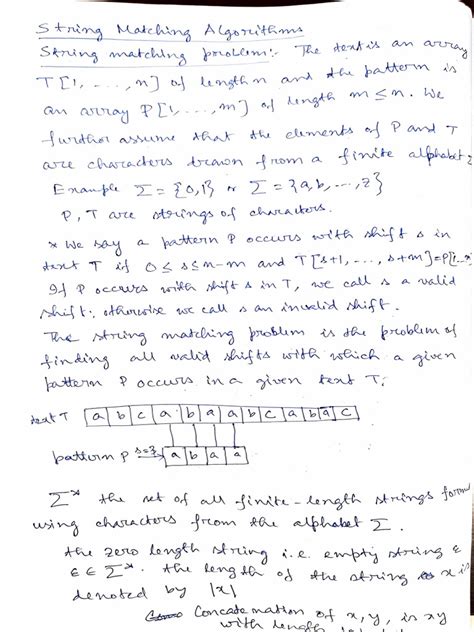 String Matching Algorithms
String matching problem:- The text is an array
T[1, ..., n] of length n and the pattern is
an array P[1, ..., m] of length m ≤ n. We
further assume that the elements of P and T
are characters drawn from a finite alphabet Σ
Example Σ = {0,1} or Σ = {a, b, ..., z}
P, T are strings of characters.
* We say a pattern P occurs with shift s in
text T if 0 ≤ s ≤ n-m and T[s+1, ..., s+m] = P[1...
If P occurs with shift s in T, we call s a valid
shift; otherwise we call s an invalid shift.
The string matching problem is the problem of
finding all valid shifts with which a given
pattern P occurs in a given text T.
text T a b c a b a a b c a b a c
pattern P s=3 a b a a
Σ* the set of all finite-length strings form
using characters from the alphabet Σ.
the zero length string i.e. empty string ε
ε ∈ Σ*. the length of the string x is
denoted by |x|
Concatenation of x, y, is xy
with length